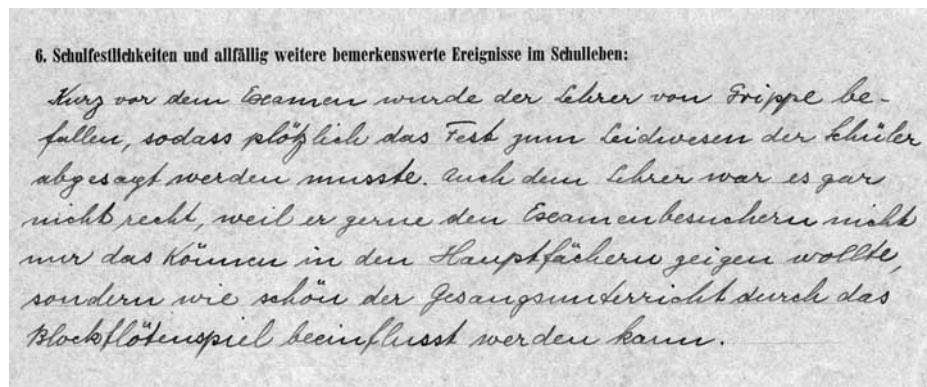 6. Schulfestlichkeiten und allfällig weitere bemerkenswerte Ereignisse im Schulleben:
Kurz vor dem Examen wurde der Lehrer von Grippe be-
fallen, sodass plötzlich das Fest zum Leidwesen der Schüler
abgesagt werden musste. Auch dem Lehrer war es gar
nicht recht, weil er gerne den Examenbesuchern nicht
nur das Können in den Hauptfächern zeigen wollte,
sondern wie schön der Gesangsunterricht durch das
Blockflötenspiel beeinflusst werden kann.